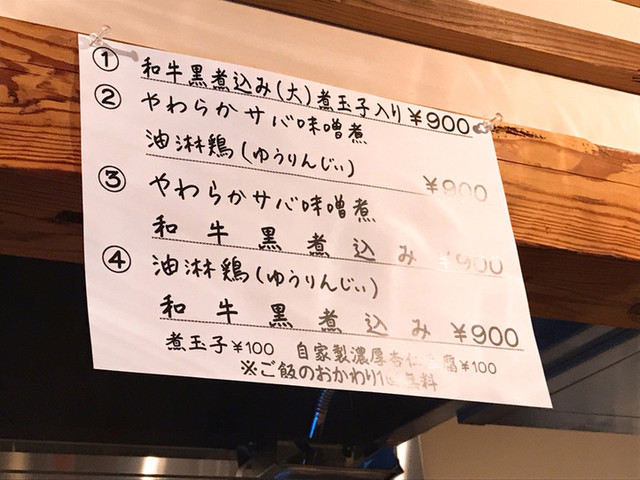 ① 和牛黒煮込み(大)煮玉子入り ¥900
② やわらかサバ味噌煮
油淋鶏(ゆうりんじぃ) ¥900
③ やわらかサバ味噌煮
和牛黒煮込み ¥900
④ 油淋鶏(ゆうりんじぃ)
和牛黒煮込み ¥900
煮玉子¥100 自家製濃厚杏仁豆腐¥100
※ご飯のおかわり1回無料